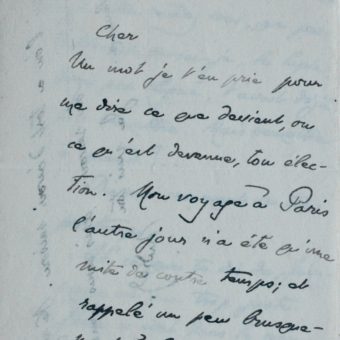 Cher
Un mot je t'en prie pour
me dire ce que devient, ou
ce qu'est devenue, ton élec-
tion. Mon voyage à Paris
l'autre jour n'a été qu'une
suite de contre temps, et
rappelé un peu brusque-